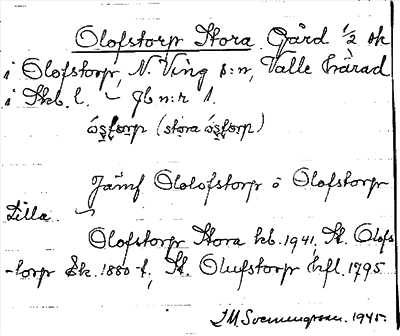 Olofstorp Stora. Gård 1/2 sk
i Olofstorp, N. Ving s:n, Valle härad
i Skb. l. – Jb n:r 1.
(stora
Jämf Ololofstorp o Olofstorp
Lilla.
Olofstorp Stora kb. 1941, St. Olofs
-torp Ek. 1880-t, St. Olufstorp hfl. 1795
1945.